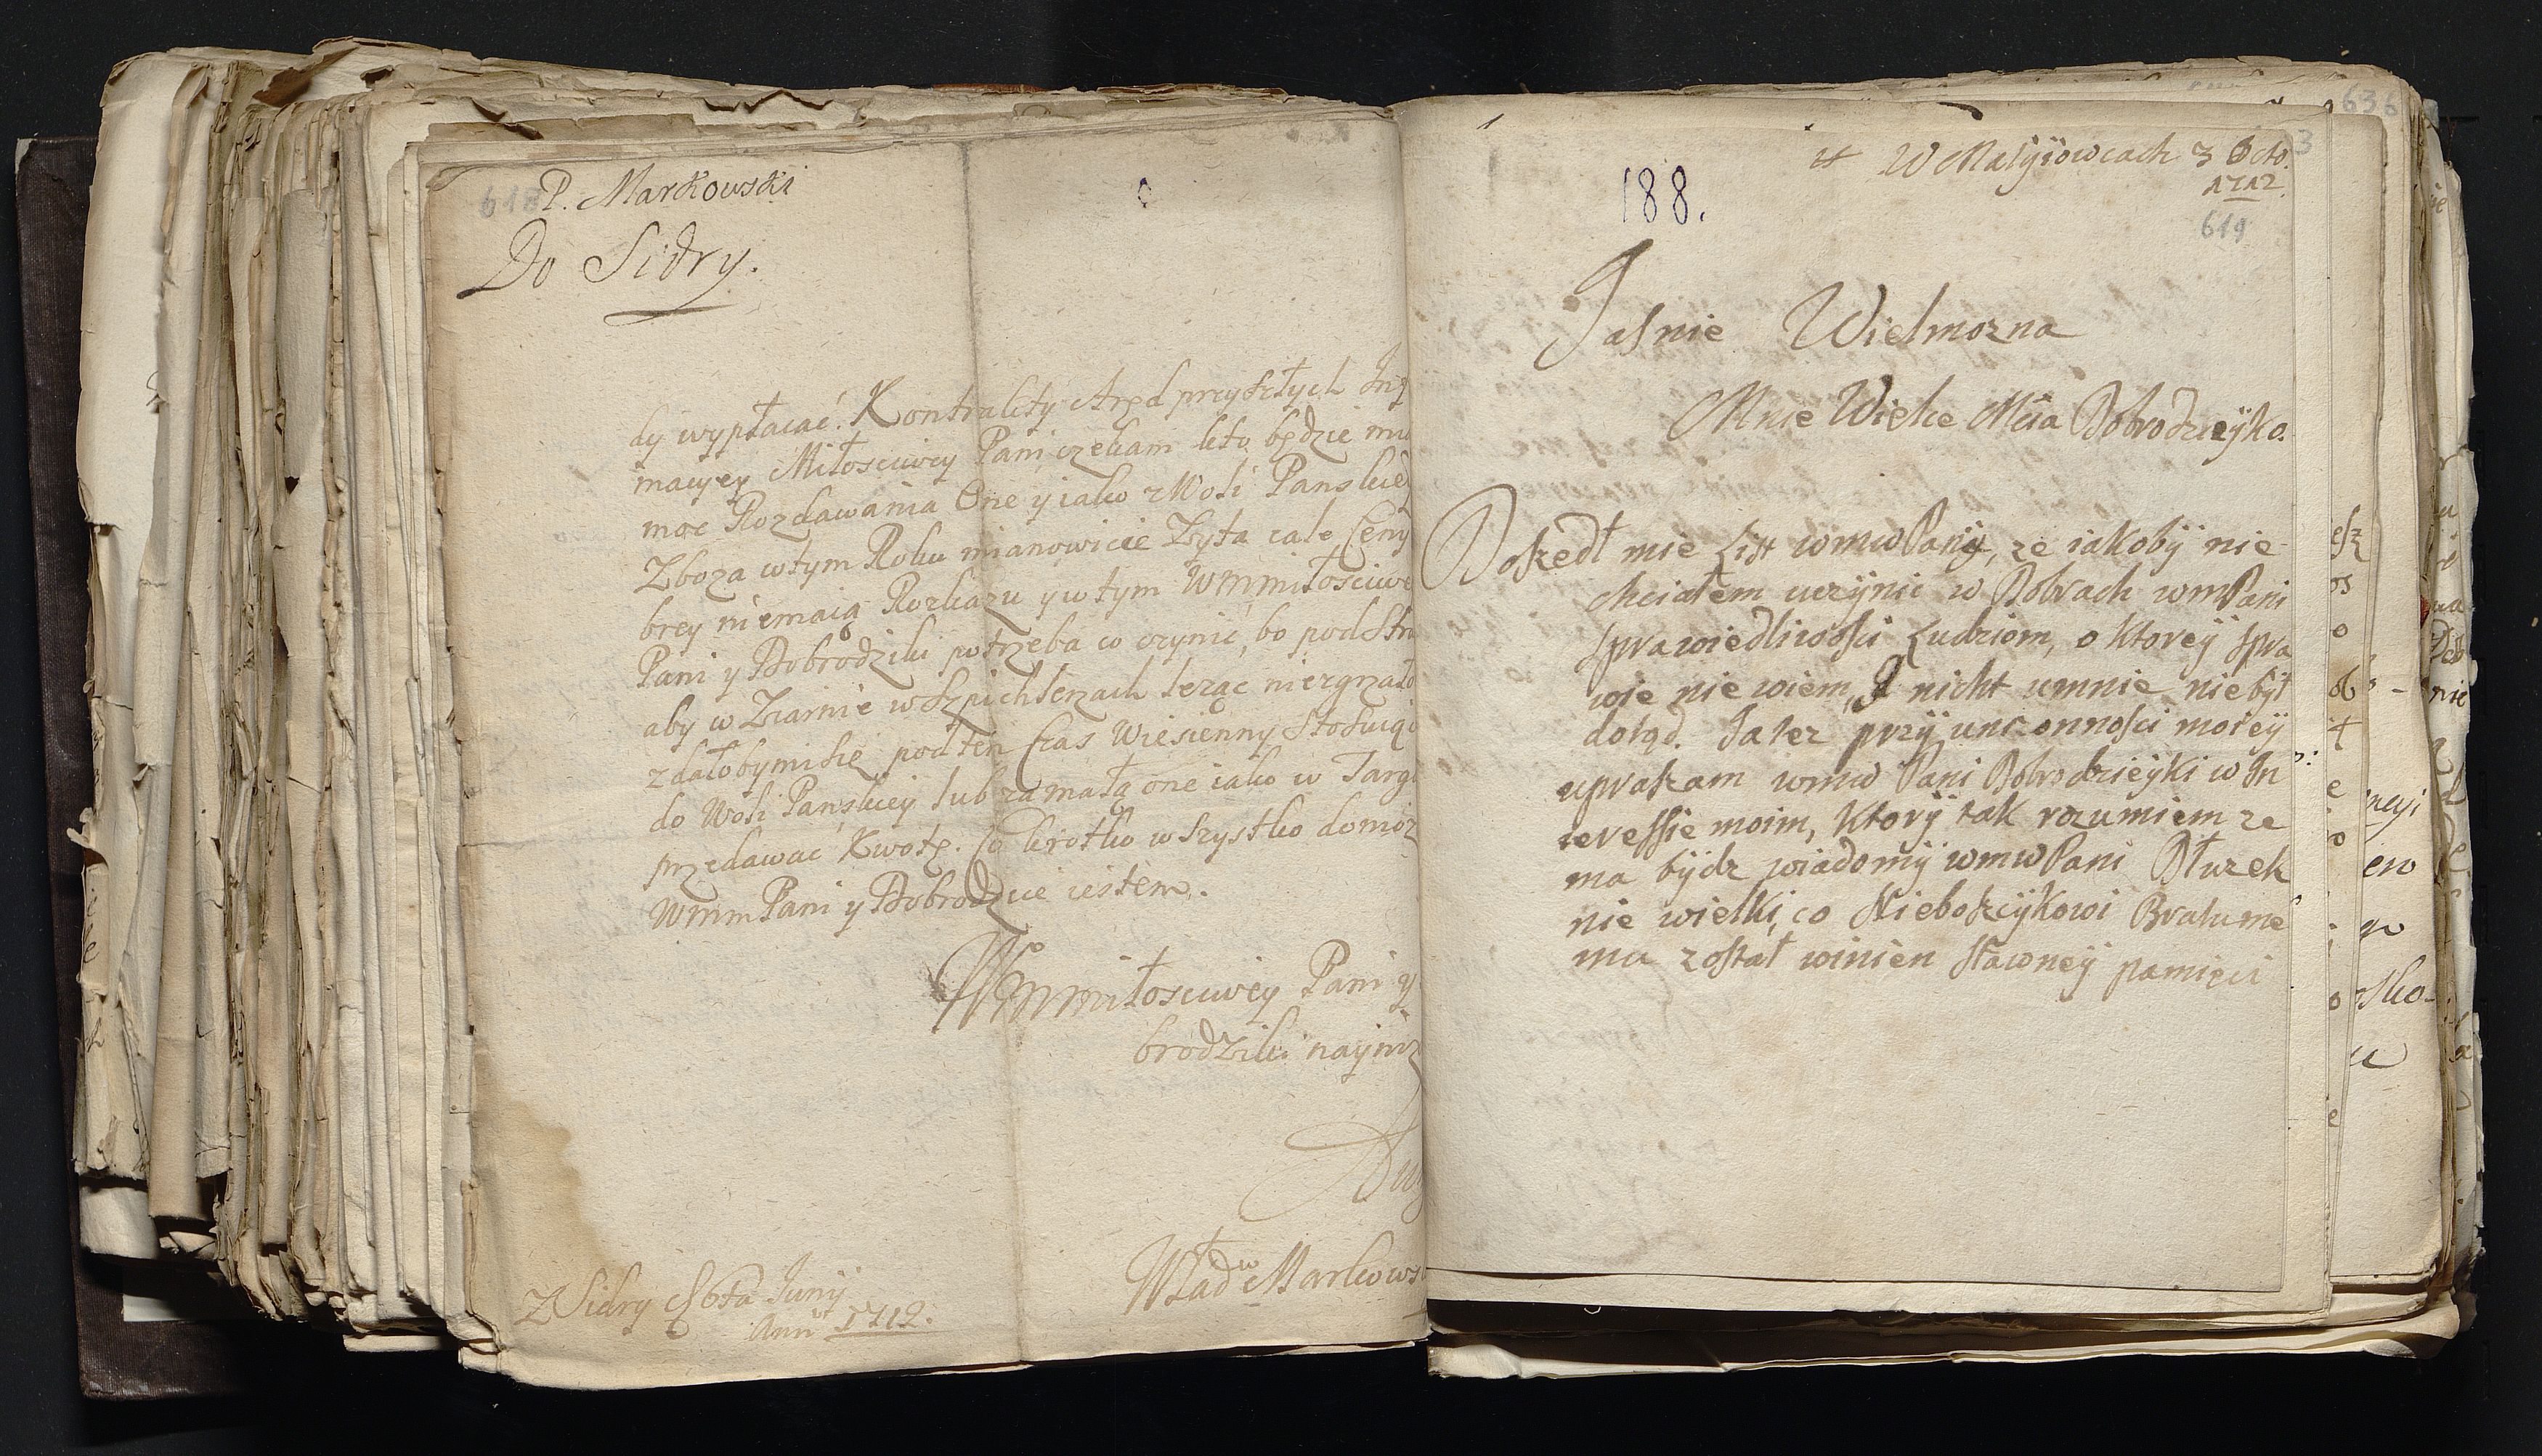 618 P. Markowski
Do Sidry.
dy wypłacać. Kontrakty Aręd przyszłych
macyey Miłosciwey Pani czekam kto będzie
moc Rozdawania One y iako z Woli Panskiey
Zboza w tym Roku mianowicie Zyta cale Ceny
brey niemaią Rozkazu y w tym WMmiłosciwe
Pani y Dobrodziki potrzeba co czynić, bo pod
aby w Ziarnie w Szpichlerzach leząc niezgnało
zdałobymisię pod ten Czas Wiesienny Stosuiąc
do Woli Panskiey lub za małą one iako w Targ
przedawac Kwotę. Co krotko wszystko
WmmPani y Dobrodzice iestem.
WMmiłosciwey Pani y
brodziki nayniz
Władw Markows
Z Sidry 6ta Juny
Ann 1712.
188.
W Matyiowcach 3 Octo.
1712.
619
636
Jasnie Wielmozna
Mnie Wielce Mcia Dobrodzieyko.
Doszedł mie List wmwPany, ze iakoby nie
chciałem uczynic w Dobrach wmPani
sprawiedliwosci Ludziom, o ktorey spra
wie nie wiem, I nicht umnie niebył
dotąd. Ja tez przy unizonnosci moiey
upraszam wmw Pani Dobrodzieyki w In
teressie moim, ktory tak rozumiem ze
ma bydz wiadomy wmwPani Dłuzek
nie wielki, co Nieboszcykowi Bratu me
mu został winien sławney pamięci